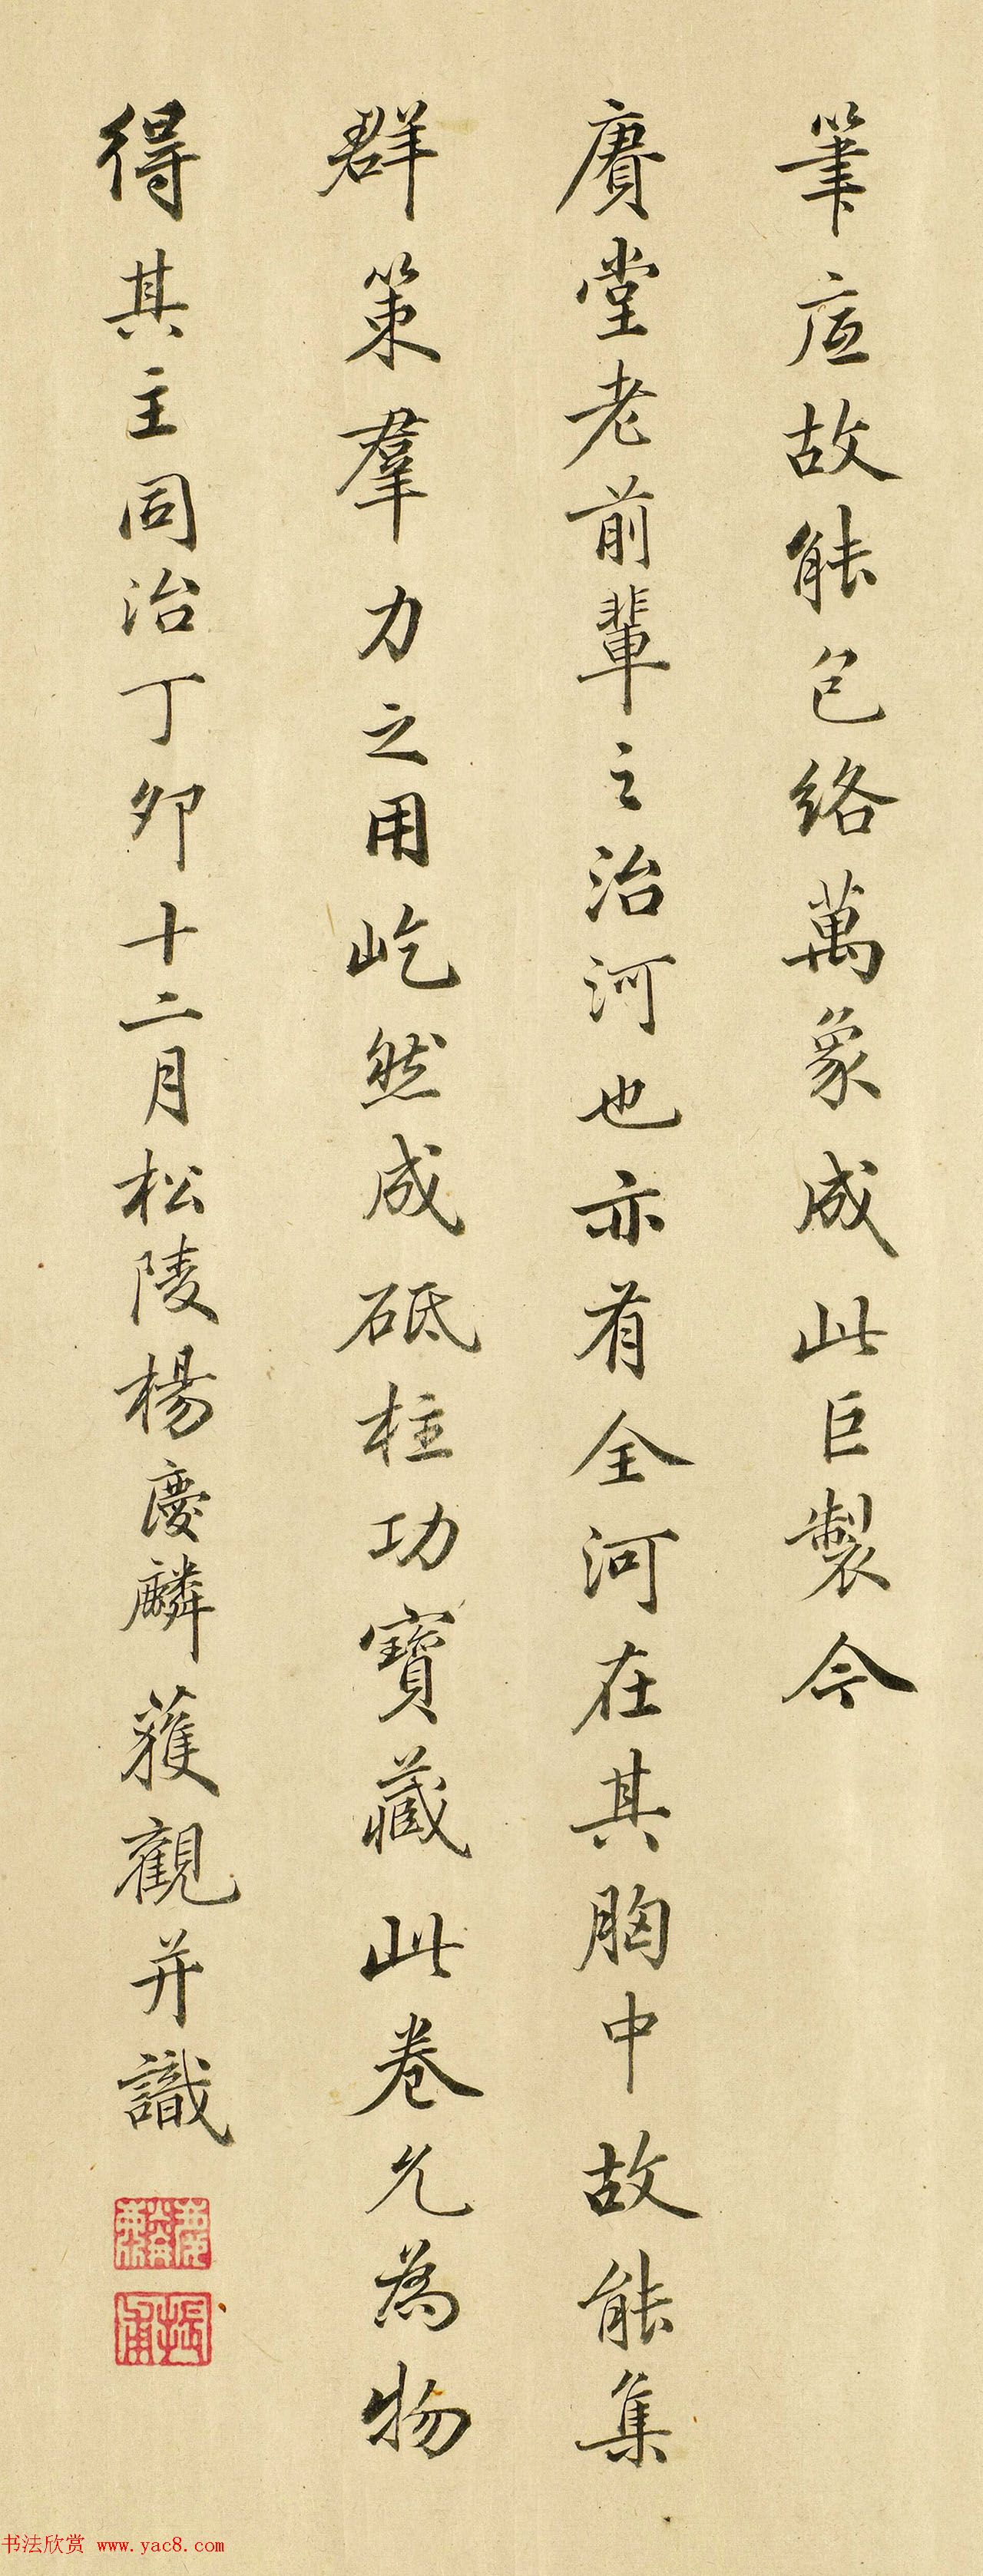 筆底故能包絡萬象成此巨製今
賡堂老前輩之治河也亦有全河在其胸中故能集
群策羣力之用屹然成砥柱功寶藏此卷允為物
得其主同治丁卯十二月松陵楊慶麟獲觀并識
振甫
书法欣赏 www.yac8.com